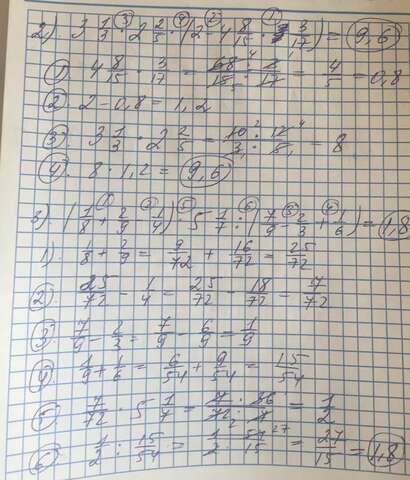 2) 3 1/3 · 2 2/5 · (2 - 4 8/15 · 3/17) = 9,6
① 4 8/15 · 3/17 = 68/15 · 3/17 = 4/5 = 0,8
② 2 - 0,8 = 1,2
③ 3 1/3 · 2 2/5 = 10/3 · 12/5 = 8
④ 8 · 1,2 = 9,6
3) (1/8 + 2/9 - 1/4) · 5 1/7 : (7/9 - 2/3 + 1/6) = 1,8
1) 1/8 + 2/9 = 9/72 + 16/72 = 25/72
② 25/72 - 1/4 = 25/72 - 18/72 = 7/72
③ 7/9 - 2/3 = 7/9 - 6/9 = 1/9
④ 1/9 + 1/6 = 6/54 + 9/54 = 15/54
5. 7/72 · 5 1/7 = 7/72 · 36/7 = 1/2
6. 1/2 : 15/54 = 1/2 · 54/15 = 27/15 = 1,8